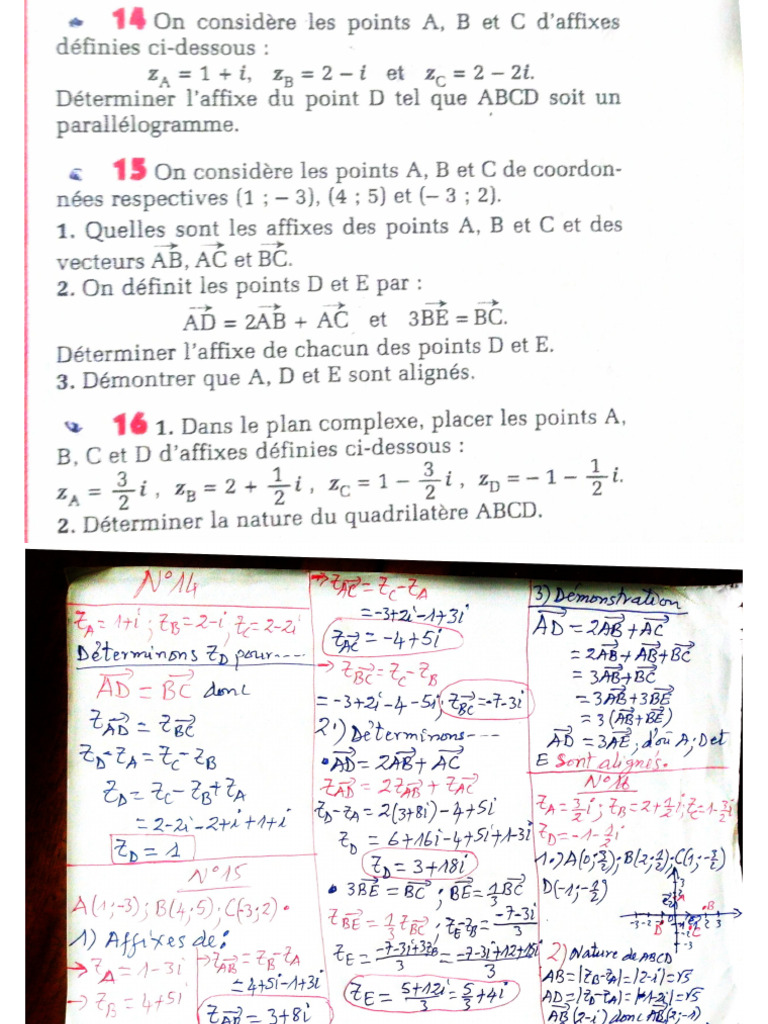 14 On considère les points A, B et C d'affixes
définies ci-dessous :
z_A = 1 + i, z_B = 2 – i et z_C = 2 – 2i.
Déterminer l'affixe du point D tel que ABCD soit un
parallélogramme.
15 On considère les points A, B et C de coordon-
nées respectives (1 ; – 3), (4 ; 5) et (– 3 ; 2).
1. Quelles sont les affixes des points A, B et C et des
vecteurs AB, AC et BC.
2. On définit les points D et E par :
AD = 2AB + AC et 3BE = BC.
Déterminer l'affixe de chacun des points D et E.
3. Démontrer que A, D et E sont alignés.
16 1. Dans le plan complexe, placer les points A,
B, C et D d'affixes définies ci-dessous :
z_A = 3/2 i , z_B = 2 + 1/2 i , z_C = 1 – 3/2 i , z_D = – 1 – 1/2 i.
2. Déterminer la nature du quadrilatère ABCD.
N°14
Z_A = 1+i ; Z_B = 2-i ; Z_C = 2-2i
Déterminons Z_D pour----
AD = BC donc
Z_AD = Z_BC
Z_D - Z_A = Z_C - Z_B
Z_D = Z_C - Z_B + Z_A
= 2-2i-2+i+1+i
Z_D = 1
N°15
A(1;-3) ; B(4;5) ; C(-3;2).
1) Affixes de :
→ Z_A = 1-3i
→ Z_B = 4+5i
→ Z_AB = Z_B - Z_A
= 4+5i-1+3i
Z_AB = 3+8i
→ Z_AC = Z_C - Z_A
= -3+2i-1+3i
Z_AC = -4+5i
→ Z_BC = Z_C - Z_B
= -3+2i-4-5i ; Z_BC = -7-3i
2°) Déterminons----
• AD = 2AB + AC
Z_AD = 2Z_AB + Z_AC
Z_D - Z_A = 2(3+8i)-4+5i
Z_D = 6+16i-4+5i+1-3i
Z_D = 3+18i
• 3BE = BC ; BE = 1/3 BC
Z_BE = 1/3 Z_BC ; Z_E - Z_B = -7-3i/3
Z_E = -7-3i+3Z_B/3 = -7-3i+12+15i/3
Z_E = 5+12i/3 = 5/3 + 4i
3) Démonstration
AD = 2AB + AC
= 2AB + AB + BC
= 3AB + BC
= 3AB + 3BE
= 3(AB + BE)
AD = 3AE, d'où A ; D et
E sont alignés.
N°16
Z_A = 3/2 i ; Z_B = 2+1/2 i ; Z_C = 1-3/2 i
Z_D = -1-1/2 i
1°) A(0;3/2) ; B(2;1/2) ; C(1;-3/2)
D(-1;-1/2)
2) Nature de ABCD
AB = |Z_B - Z_A| = |2-i| = √5
AD = |Z_D - Z_A| = |-1-2i| = √5
AB(2-i) donc AB(2;-1)